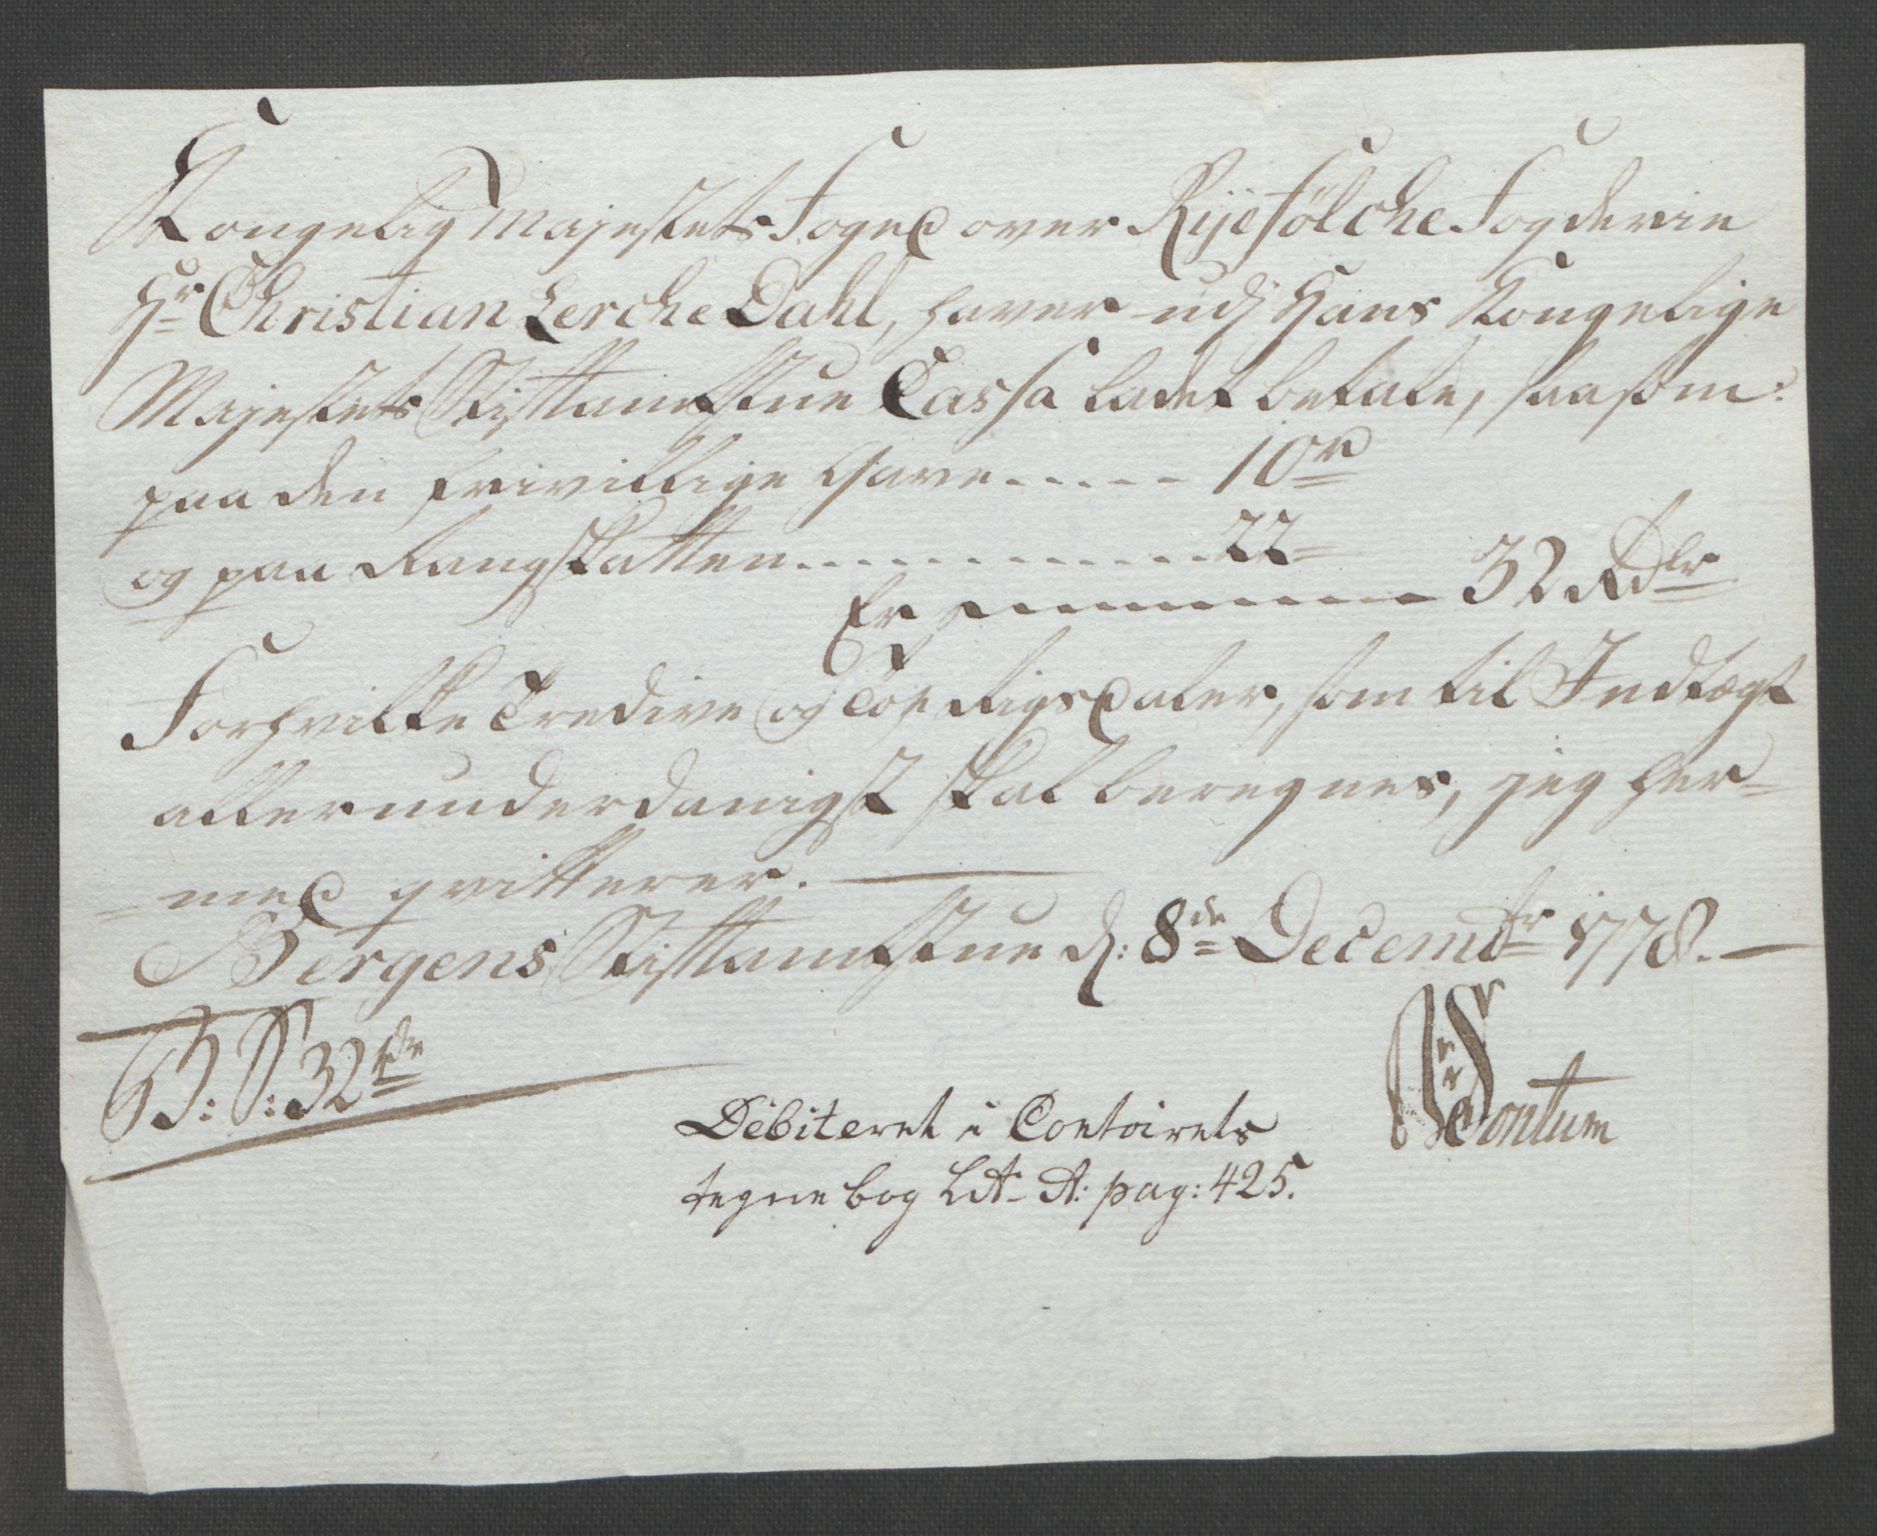 Kongelig Majestets Foged over Ryefölche Fogderie
Hr Christian Lerche Dahl, haver udj Hans Kongelige
Majestets Stiftamtstue Cassa ladet betale, saasom:
paa den frivillige Gave..... 10 rd
og paa Rangskatten............ 22 =
Er 32 Rdlr
Forhvilke Tredive og Toe Rigsdaler, som til Indtægt
allerunderdanigst skal beregnes, jeg her=
=med qvitterer.
Bergens Stiftamtstue d: 8de Decembr 1778.
B: S: 32 rdr
Sontum
Debiteret i Contoirets
tegnebog Lit A: pag: 425.